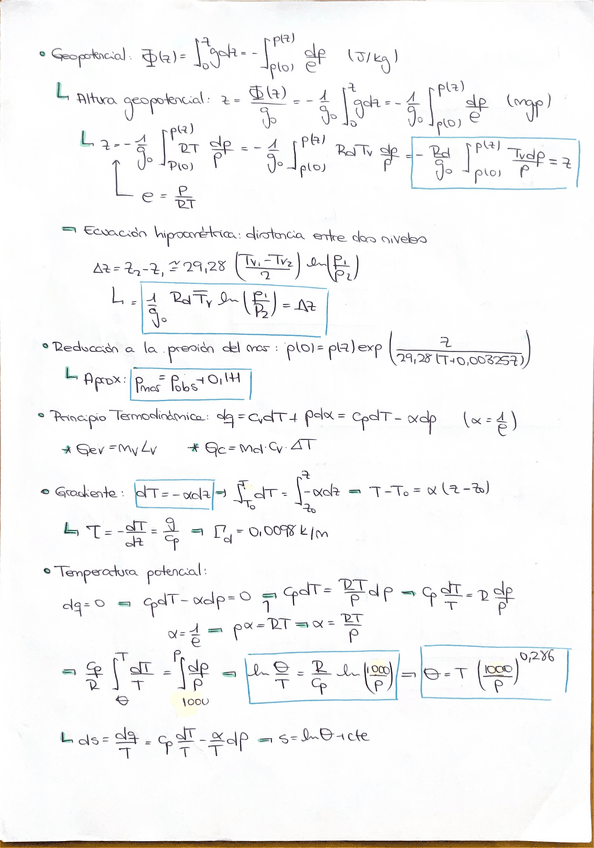 • Geopotencial: Φ(z) = ∫₀ᶻ gdz = - ∫_{p(0)}^{p(z)} dp/ρ (J/kg)
↳ Altura geopotencial: z = Φ(z)/g₀ = - 1/g₀ ∫₀ᶻ gdz = - 1/g₀ ∫_{p(0)}^{p(z)} dp/ρ (mgp)
↳ z = - 1/g₀ ∫_{p(0)}^{p(z)} RT dp/p = - 1/g₀ ∫_{p(0)}^{p(z)} RdTv dp/p = - Rd/g₀ ∫_{p(0)}^{p(z)} Tvdp/p = z
ρ = P/RT
⇒ Ecuación hipsométrica: distancia entre dos niveles
Δz = z₂-z₁ ≅ 29,28 (Tv₁-Tv₂/2) ln(p₁/p₂)
↳ = 1/g₀ Rd T̄v ln (p₁/p₂) = Δz
• Reducción a la presión del mar: p(0) = p(z) exp (z/29,28(T+0,00325z))
↳ Aprox: Pmar = Pobs + 0,1H
• Principio Termodinámica: dq = CvdT + pdα = CpdT - αdp (α = 1/ρ)
* Qev = mvLv * Qc = md·Cv·ΔT
• Gradiente: dT = -αdz → ∫_{T₀}^{T} dT = ∫_{z₀}^{z} -αdz ⇒ T-T₀ = α(z-z₀)
↳ Γ = -dT/dz = g/Cp ⇒ Γd = 0,0098 k/m
• Temperatura potencial:
dq=0 ⇒ CpdT - αdp = 0 ⇒ CpdT = RT/P dp → Cp dT/T = R dp/p
α = 1/ρ ⇒ pα = RT ⇒ α = RT/P
⇒ Cp/R ∫_{θ}^{T} dT/T = ∫_{1000}^{P} dp/p ⇒ ln θ/T = R/Cp ln (1000/P) ⇒ θ = T (1000/P)^{0,286}
↳ ds = dq/T = Cp dT/T - α/T dp ⇒ s = lnθ + cte